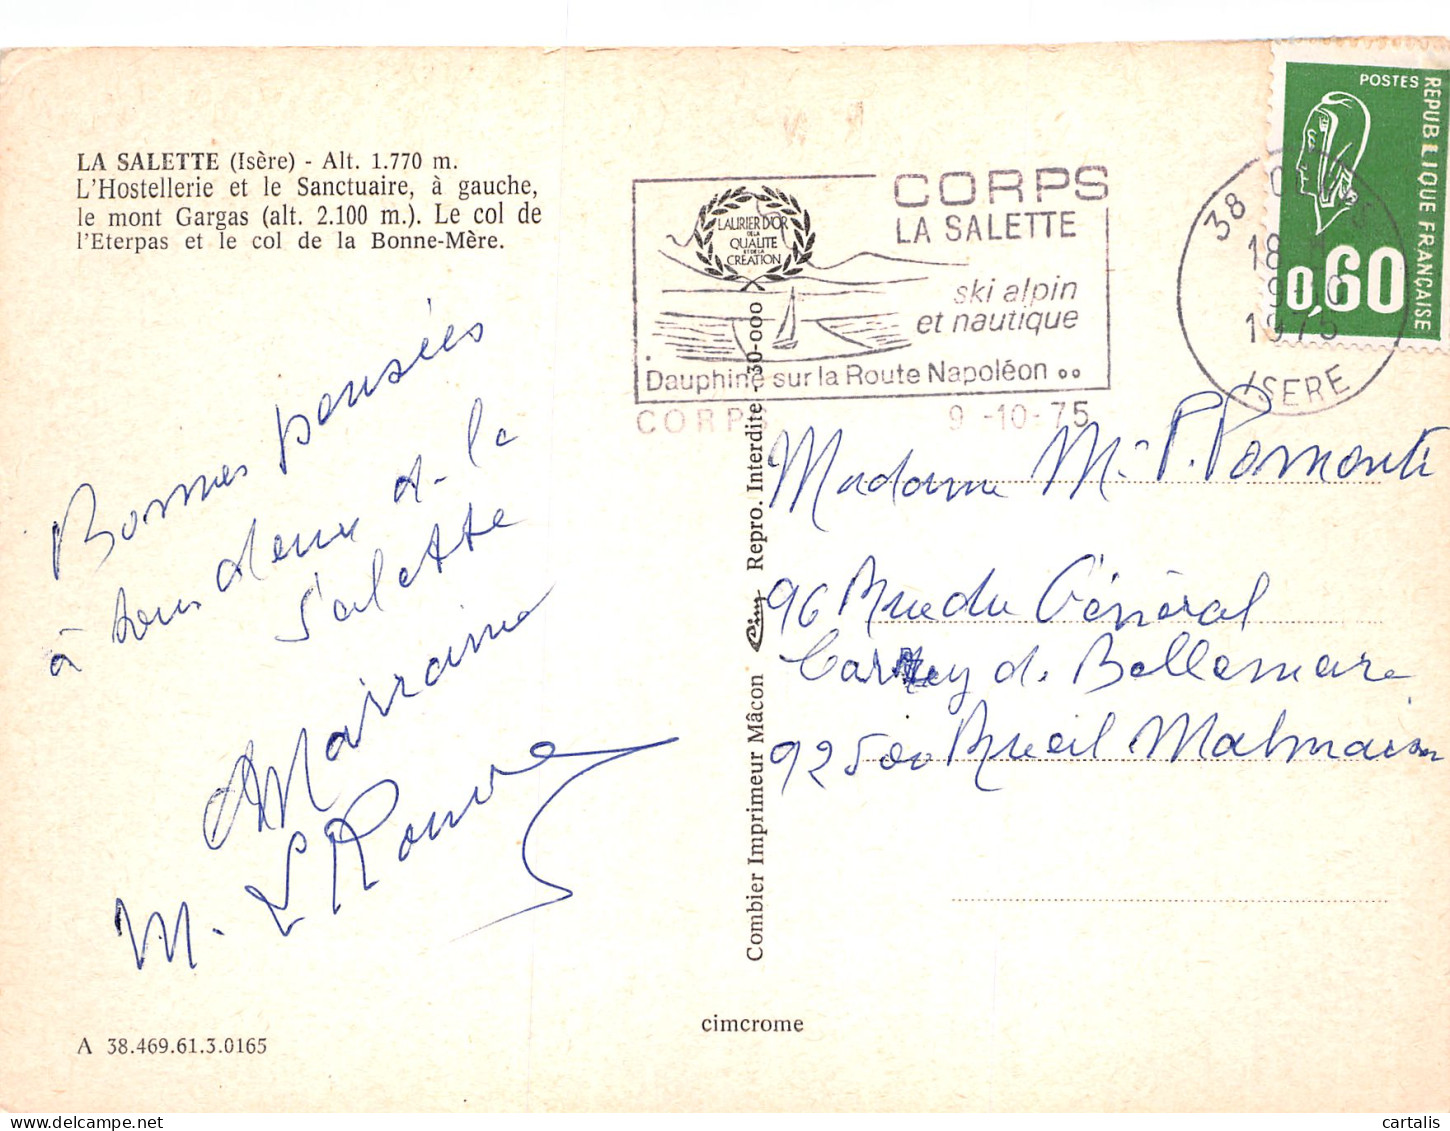 LA SALETTE (Isère) - Alt. 1.770 m.
L'Hostellerie et le Sanctuaire, à gauche,
le mont Gargas (alt. 2.100 m.). Le col de
l'Eterpas et le col de la Bonne-Mère.
Bonnes pensées
à tous deux de la
Salette
M.
A 38.469.61.3.0165
LAURIER D'OR
DE LA
QUALITE
ET DE LA
CREATION
CORPS
LA SALETTE
ski alpin
et nautique
Dauphiné sur la Route Napoléon
CORPS 9-10-75
38 CORPS
18 H
9-10
1975
ISERE
POSTES
REPUBLIQUE FRANÇAISE
0,60
Combier Imprimeur Mâcon Cim Repro. Interdite - 30-000
cimcrome
Madame M. P. Pomonti
96 Rue du Général
Carrey de Bellemare
92500 Rueil Malmaison
cartalis